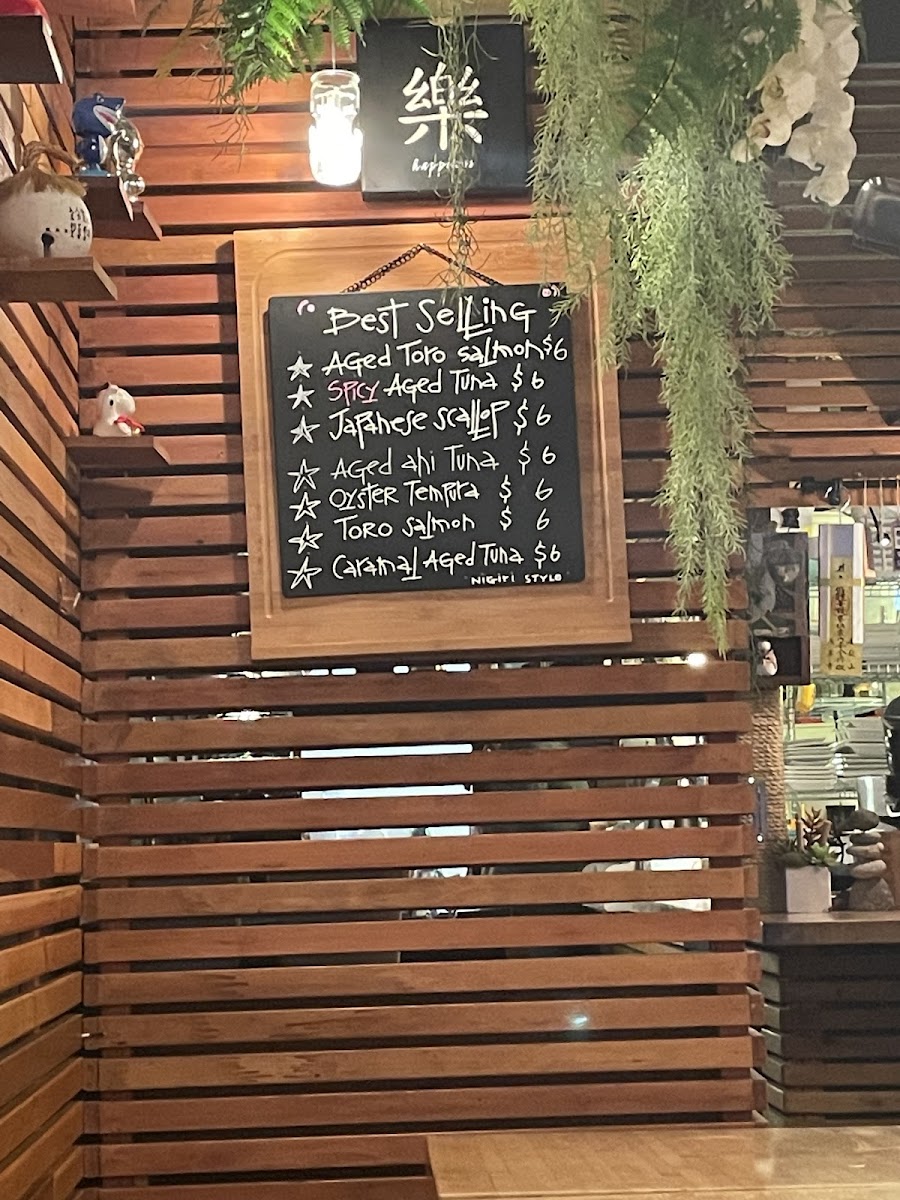 樂
happiness
Best Selling
☆ Aged Toro salmon $6
☆ SPICY Aged Tuna $6
☆ Japanese scallop $6
☆ Aged ahi Tuna $6
☆ OYSTER Tempura $6
☆ TORO salmon $6
☆ Caramal Aged Tuna $6
NIGIRI STYLE